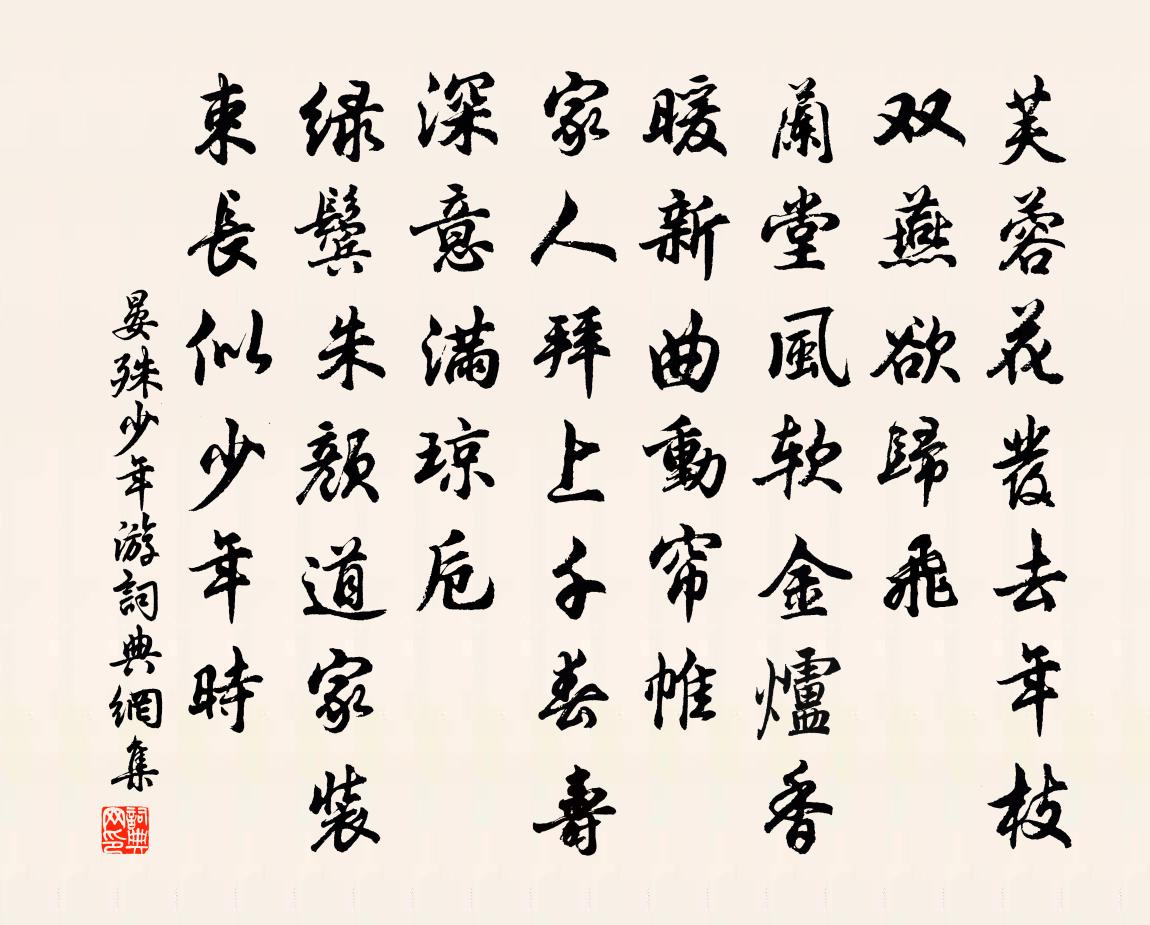 芙蓉花發去年枝
双燕欲歸飛
蘭堂風软金爐香
暖新曲動帘帷
家人拜上千春壽
深意滿琼卮
绿鬓朱顏道家装
束長似少年時
晏殊少年游詞典網集
詞典网印